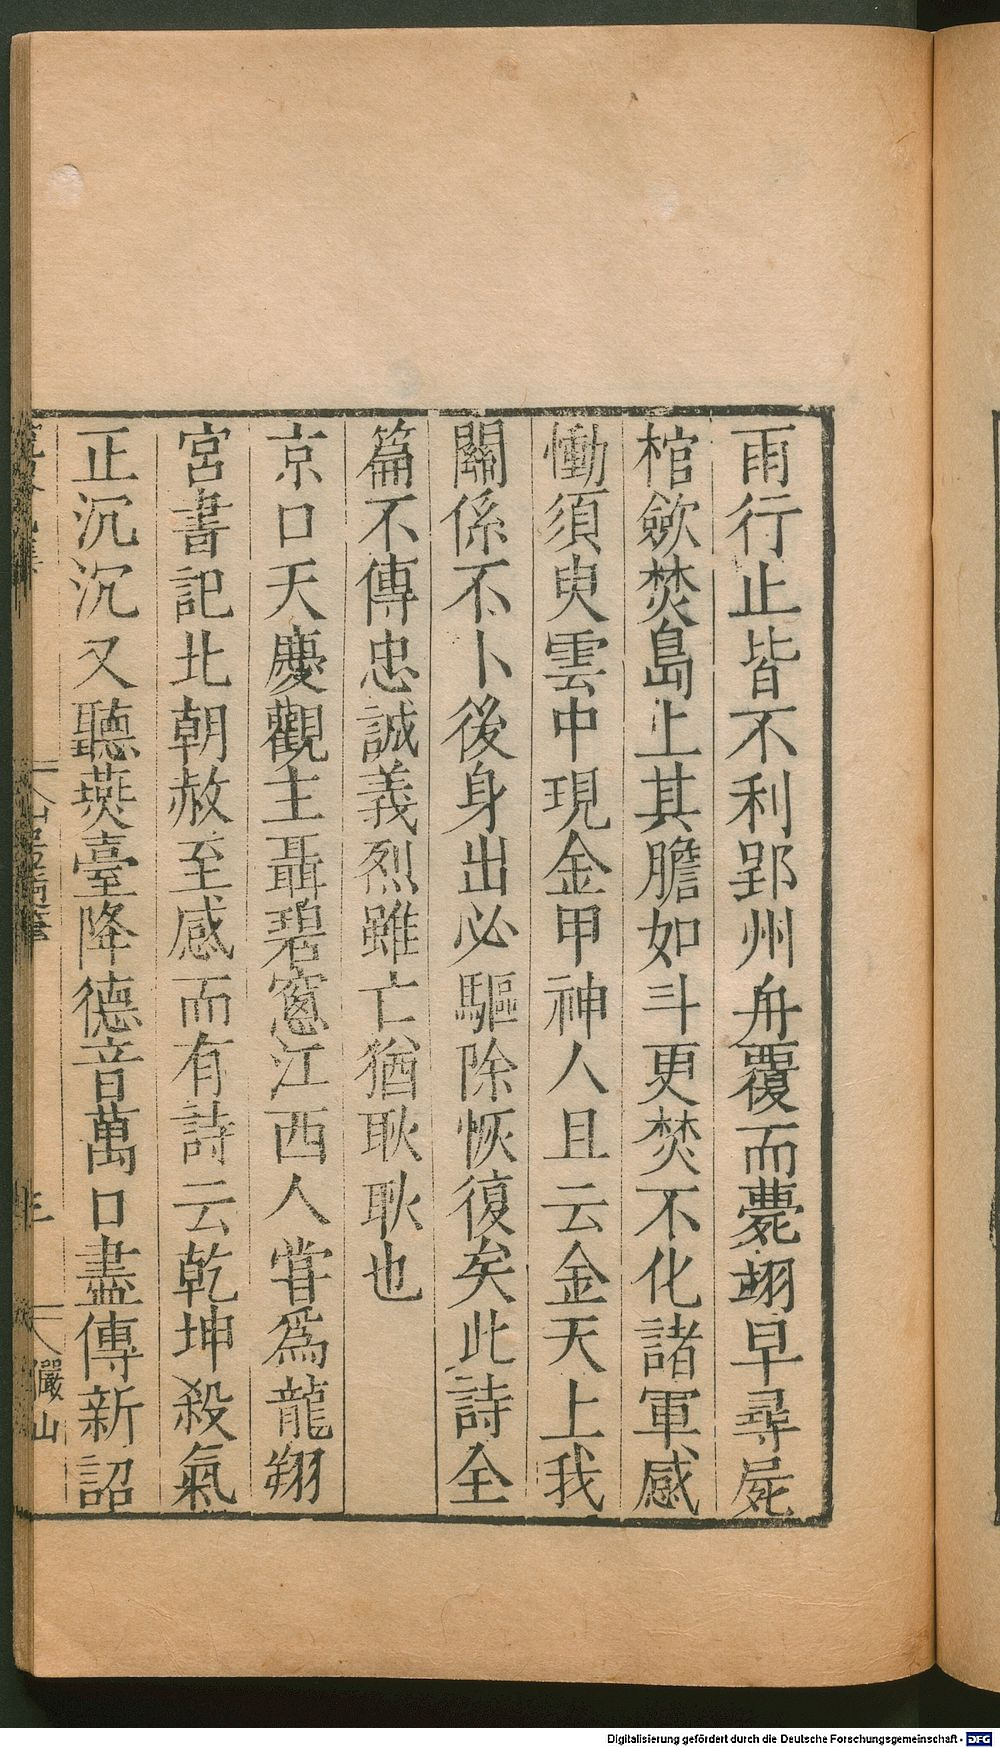 雨行止皆不利郢州舟覆而薨翊早尋屍
棺歛焚島上其膽如斗更焚不化諸軍感
慟須臾雲中現金甲神人且云金天上我
關係不卜後身出必驅除恢復矣此詩全
篇不傳忠誠義烈雖亡猶耿耿也
京口天慶觀主聶碧窻江西人甞爲龍翔
宮書記北朝赦至感而有詩云乾坤殺氣
正沉沉又聽燕臺降德音萬口盡傳新詔
儼山
Digitalisierung gefördert durch die Deutsche Forschungsgemeinschaft - DFG